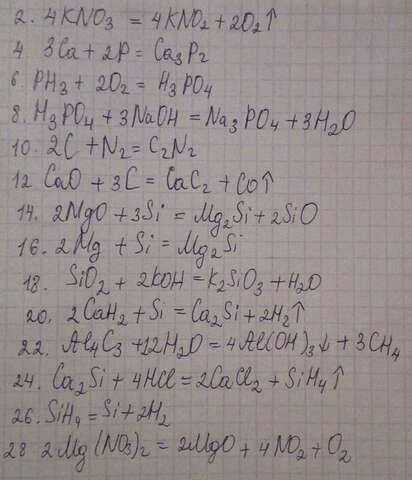 2. 4KNO₃ = 4KNO₂ + 2O₂↑
4 3Ca + 2P = Ca₃P₂
6 PH₃ + 2O₂ = H₃PO₄
8. H₃PO₄ + 3NaOH = Na₃PO₄ + 3H₂O
10. 2C + N₂ = C₂N₂
12 CaO + 3C = CaC₂ + CO↑
14. 2MgO + 3Si = Mg₂Si + 2SiO
16. 2Mg + Si = Mg₂Si
18. SiO₂ + 2KOH = K₂SiO₃ + H₂O
20. 2CaH₂ + Si = Ca₂Si + 2H₂↑
22. Al₄C₃ + 12H₂O = 4Al(OH)₃↓ + 3CH₄
24. Ca₂Si + 4HCl = 2CaCl₂ + SiH₄↑
26. SiH₄ = Si + 2H₂
28 2Mg(NO₃)₂ = 2MgO + 4NO₂ + O₂